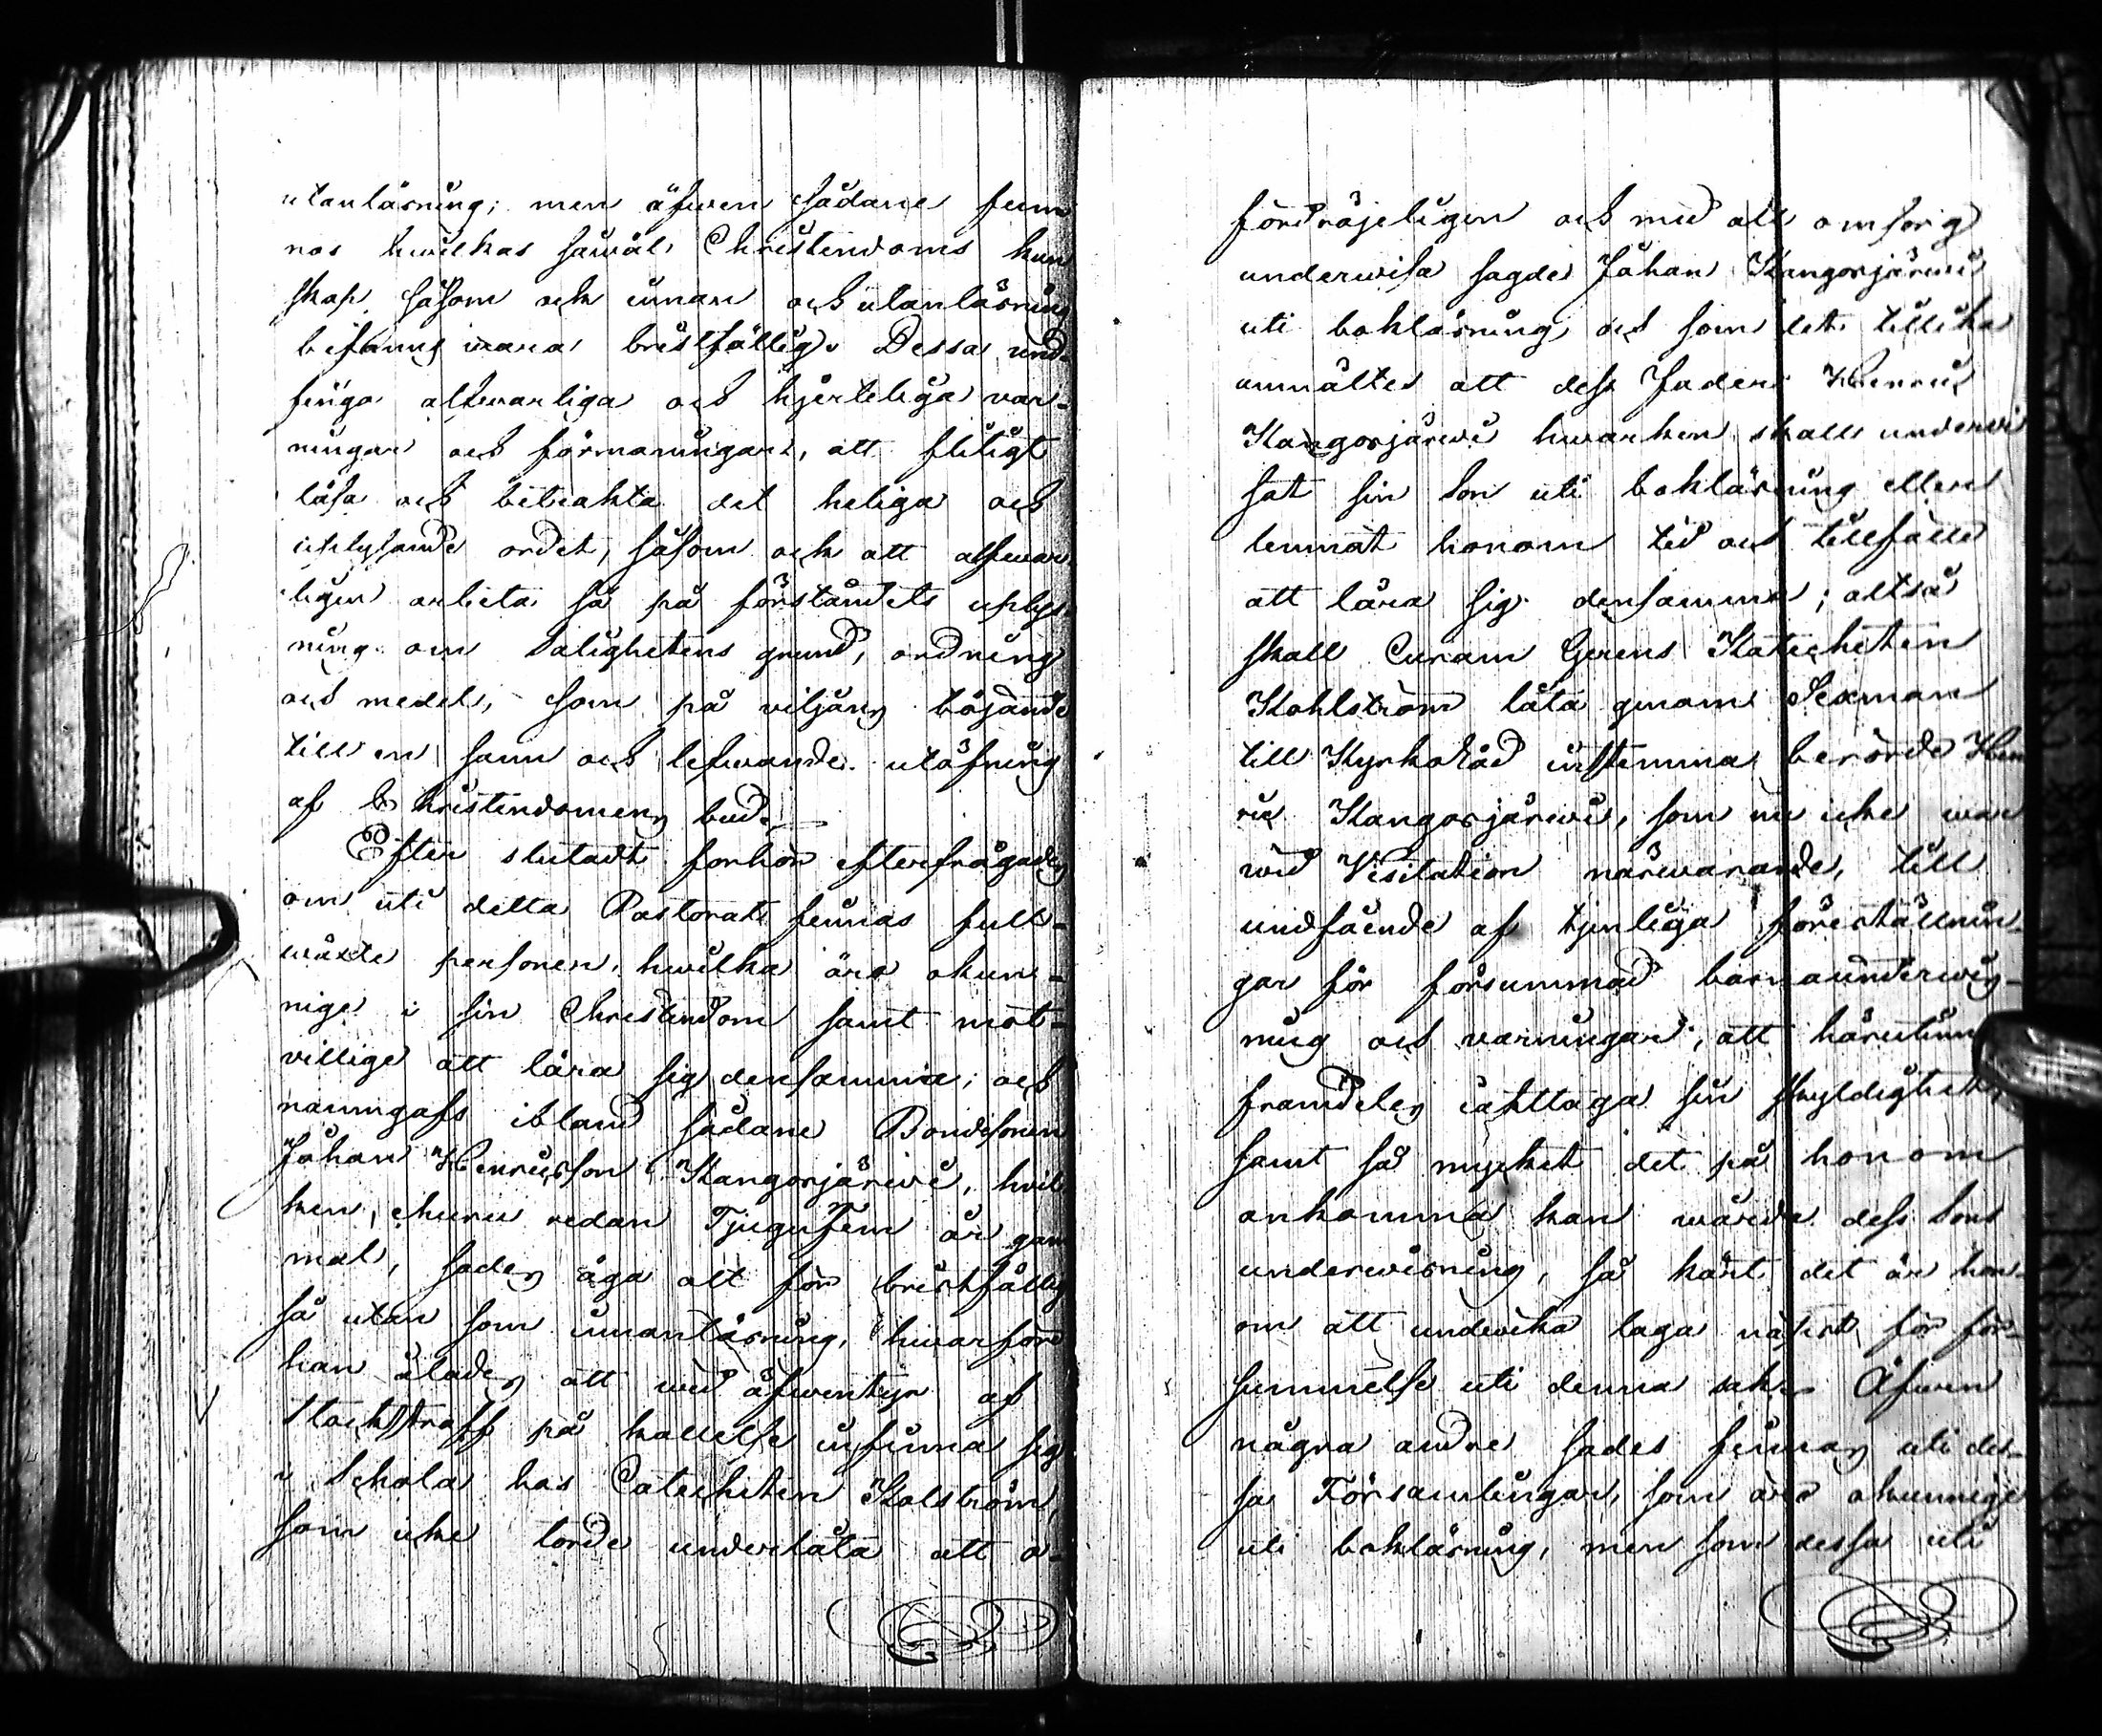 utanläsning; men äfwen sådane fun
nos hwilkas såwäl Christendoms kun
skap såsom ock innan och utanläsning
befanns wara bristfällig. Dessa und-
fingo alfwarliga och hjertliga var-
ningar och förmaningar, att flitigt
läsa och betrakta det heliga och
uplysande ordet, såsom ock att alfwar
ligen arbeta så på förståndets uplys
ning om Salighetens grund, ordning
och medel, som på viljans böjande
till en sann och lefwande utöfning
af Christendomens bud.
Efter slutadt förhör efterfrågades
om uti detta Pastorat finnas full-
wäxte personer, hwilka äro okun-
nige i sin Christendom samt mot-
villige att lära sig densamma; och
namngafs ibland sådane Bondesonen
Johan Henricsson Kangosjärwi, hvil
ken, ehuru redan Tjugufem år gam
mal, sades äga allt för bristfällig
så utan som innanläsning, hwarföre
han ålades att wid äfwentyr af
Stockstraff på kallelse infinna sig
i Schola hos Catecheten Kolström,
som icke torde underlåta att o-
fördröjeligen och med all omsorg
underwisa sagde Johan Kangosjärwi
uti bokläsning; och som det tillika
anmältes att dess Fader Henric
Kangosjärwi hwarken skall underwi
sat sin Son uti bokläsning eller
lemnat honom tid och tillfälle
att lära sig densamma; altså
skall Curam Gerens Katecheten
Kohlström låta genom Sexman
till Kyrkoråd instemma berörde Hen
ric Kangosjärwi, som nu icke war
wid Visitation närwarande, till
undfående af tjenliga föreställnin-
gar för försummad barnaunderwis-
ning och varningar, att härutinnan
framdeles iakttaga sin skyldighet,
samt så mycket det på honom
ankomma kan wårda dess Sons
underwisning, så kärt det är hon-
om att undwika laga näpst för för-
summelse uti denna sak. Äfwen
några andre sades finnas uti des-
sa Församlingar, som äro okunnige
uti bokläsning, men som dessa uti